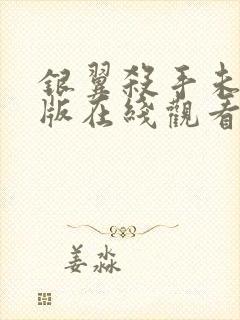 銀翼殺手未
版在綫觀看
姜淼